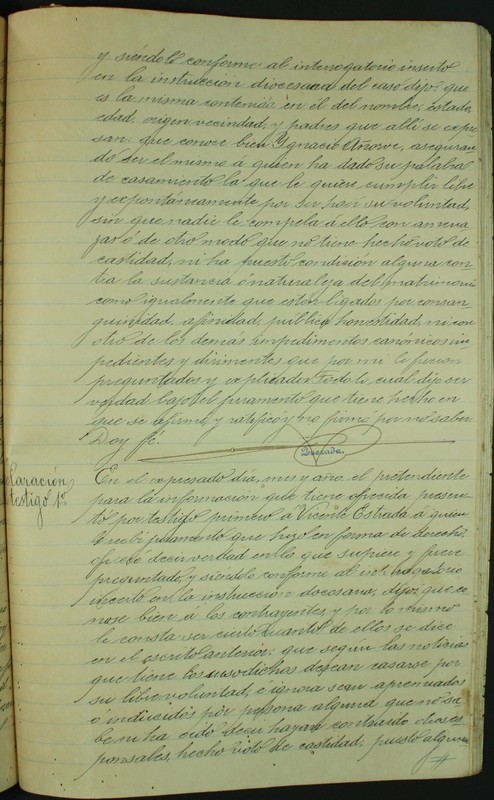 y siéndolo conforme al interrogatorio inserto
en la instrucción diocesana del caso dijo: que
es la misma contenida en él del nombre, estado,
edad, origen, vecindad, y padres que allí se expre
san: que conoce bien Ygnacio Añorve, aseguran
do ser el mismo á quien ha dado su palabra
de casamiento la que le quiere cumplir libre
y expontáneamente por ser hacer su voluntad,
sin que nadie le compela á ello con amena
zas ó de otro modo que no tiene hecho voto de
castidad, ni ha puesto condición alguna con
tra la sustancia ó naturaleza del matrimonio
como igualmente que están ligados por consan
guinidad, afinidad, pública honestidad, ni con
otro de los demás impedimentos canónicos im
pedientes y dirimentes que por mi le fueron
preguntados y explicados. Todo lo cual dijo ser
verdad bajo del juramento que tiene hecho en
que se afirmó y ratificó y no firmó por no saber.
Doy fé.
Quezada.
claración
testigo 1º
En el expresado día, mes y año el pretendiente
para la información que tiene ofrecida presen
tó por testigo primero á Vicente Estrada á quien
le recibí juramento que hizo en forma de derecho,
ofreció decir verdad en lo que supiere y fuere
preguntado, y siéndolo conforme al
incerto en la instrucción docosana, dijo: que co
nose bien á los contrayentes, y por lo mismo
le consta ser cierto cuanto de ellos se dice
en el escrito anterior: que segun las noticias
que tiene los susodichos desean casarse por
su libre voluntad, e ignora sean apremiados
e inducidos por persona alguna que no sa
be ni ha oido decir hayan contraido otros es
ponsales, hecho voto de castidad, puesto alguna